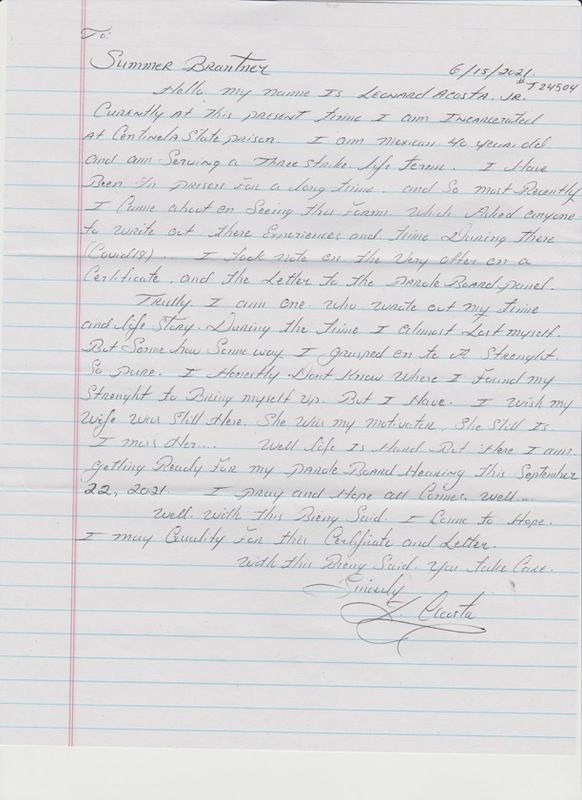 To:
Summer Brantner 6/15/2021.
# T24504
Hello my name Is Leonard Acosta. Jr.
Currently at this present time I am Incarcerated
at Centinela State prison. I am Mexican 40 years old
and am Serving a Three Strike life term. I Have
Been In prison For a long time. and So most Recently
I Came about on Seeing this Form. Which Asked anyone
to write out there Experiences and time During there
(Covid 19). I took note on the Very offer on a
Certificate. and the Letter to the Parole Board panel.
Trully. I am one. who wrote out my time
and life Story. During the time I almost Lost myself.
But Some how Some way I grasped on to A Strenght
So pure. I Honestly Dont Know Where I Found my
Strenght to Bring myself up. But I Have. I wish my
Wife was Still Here. She was my motivator. She Still Is.
I miss Her.... Well life Is Hard But Here I am.
getting Ready For my parole Board Hearing this September
22, 2021. I pray and Hope all Comes. Well..
Well. With this Bieng Said. I Come to Hope.
I may Quality For this Certificate and Letter.
With this Bieng Said You take Care.
Sincerly
L. Acosta